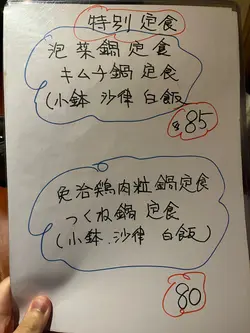 特別定食
泡菜鍋定食
キムチ鍋定食
(小鉢 沙律 白飯
$85
免治鶏肉粒鍋定食
つくね鍋定食
(小鉢.沙律 白飯)
80